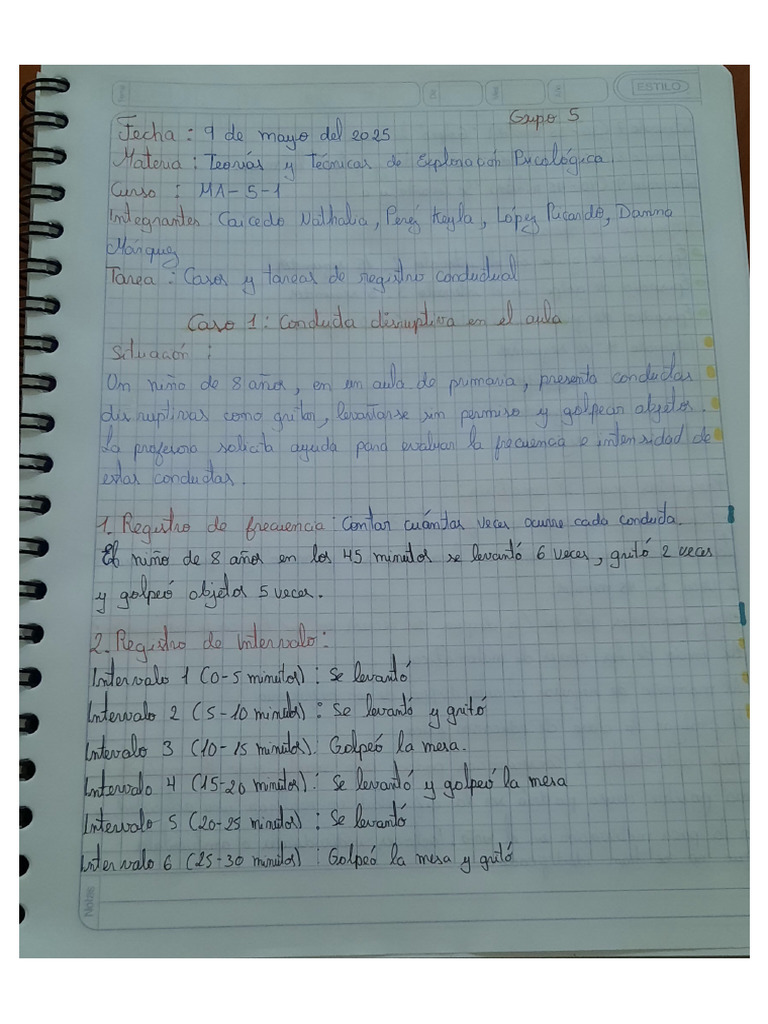 ESTILO
Grupo 5
Fecha : 9 de mayo del 2025
Materia : Teorías y Técnicas de Exploración Psicológica.
Curso : MA-5-1
Integrantes : Caicedo Nathalia, Perez Keyla, López Ricardo, Danna
Márquez
Tarea : Casos y tareas de registro conductual
Caso 1 : Conducta disruptiva en el aula
Situación :
Un niño de 8 años, en un aula de primaria, presenta conductas
disruptivas como gritar, levantarse sin permiso y golpear objetos.
La profesora solicita ayuda para evaluar la frecuencia e intensidad de
estas conductas.
1. Registro de frecuencia : Contar cuántas veces ocurre cada conducta.
El niño de 8 años en los 45 minutos se levantó 6 veces, gritó 2 veces
y golpeó objetos 5 veces.
2. Registro de intervalo :
Intervalo 1 (0-5 minutos) : Se levantó
Intervalo 2 (5-10 minutos) : Se levantó y gritó
Intervalo 3 (10-15 minutos) : Golpeó la mesa.
Intervalo 4 (15-20 minutos) : Se levantó y golpeó la mesa
Intervalo 5 (20-25 minutos) : Se levantó
Intervalo 6 (25-30 minutos) : Golpeó la mesa y gritó
Notas